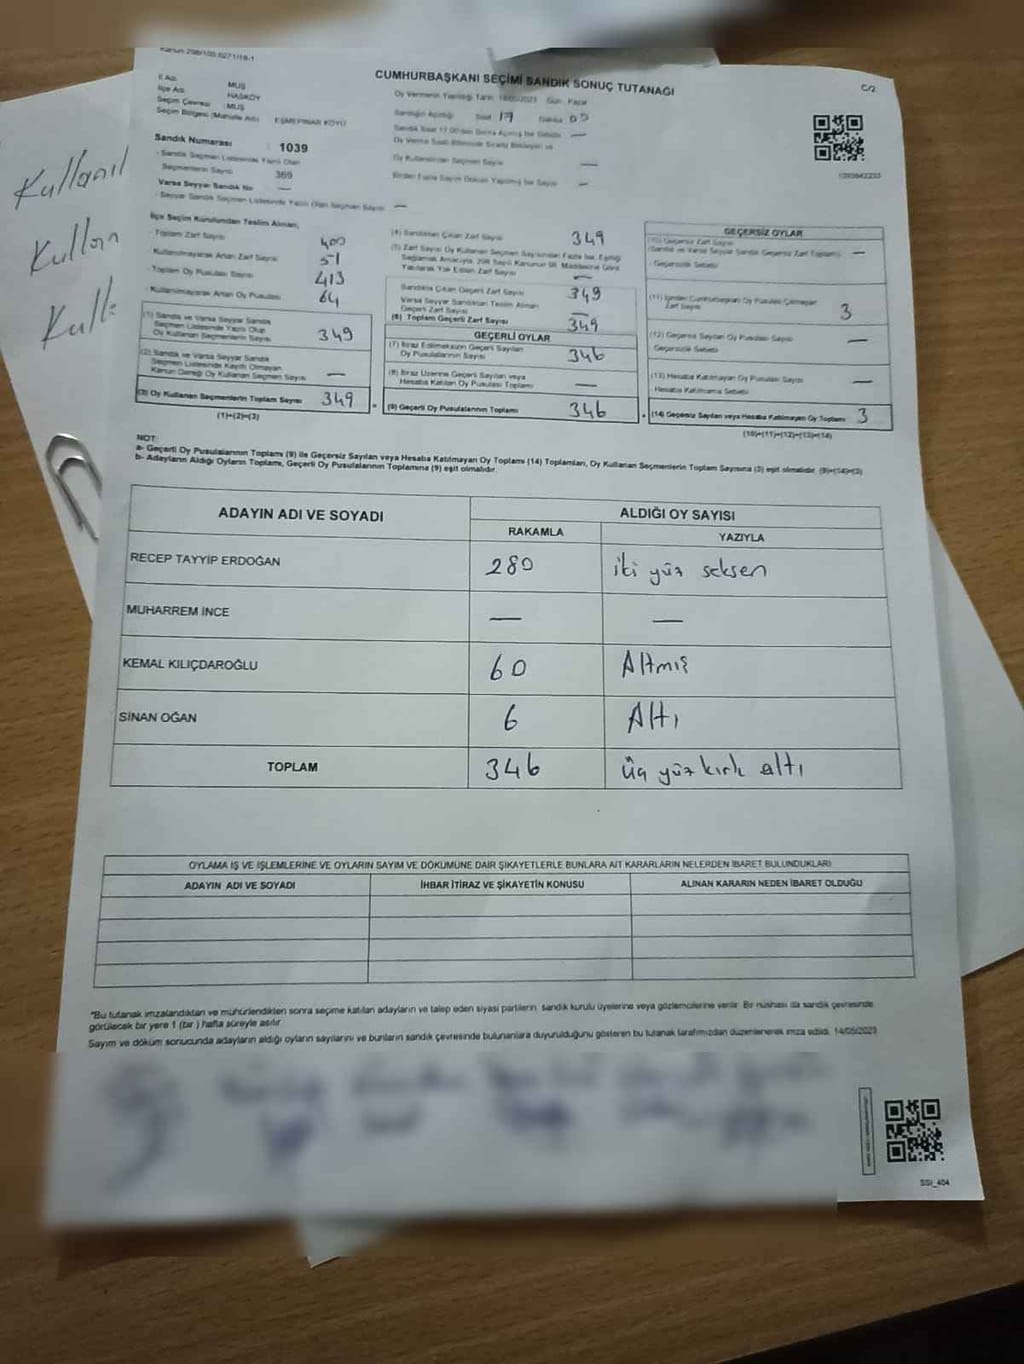 Kanun:298/105;6271/18-1
CUMHURBAŞKANI SEÇİMİ SANDIK SONUÇ TUTANAĞI
C/2
İl Adı MUŞ
İlçe Adı HASKÖY
Seçim Çevresi MUŞ
Seçim Bölgesi (Mahalle Adı) EŞMEPINAR KÖYÜ
Sandık Numarası : 1039
Sandık Seçmen Listesinde Yazılı Olan
Seçmenlerin Sayısı 369
Varsa Seyyar Sandık No —
Seyyar Sandık Seçmen Listesinde Yazılı Olan Seçmen Sayısı —
Oy Vermenin Yapıldığı Tarih 14/05/2023 Gün Pazar
Sandığın Açıldığı Saat 17 Dakika 05
Kullanıl
Kullan
Kull
İlçe Seçim Kurulundan Teslim Alınan;
Toplam Zarf Sayısı 400
Kullanılmayarak Artan Zarf Sayısı 51
Toplam Oy Pusulası Sayısı 413
Kullanılmayarak Artan Oy Pusulası 64
(1) Sandık ve Varsa Seyyar Sandık
Seçmen Listesinde Yazılı Olup
Oy Kullanan Seçmenlerin Sayısı 349
(2) Sandık ve Varsa Seyyar Sandık
Seçmen Listesinde Kayıtlı Olmayan
Kanun Gereği Oy Kullanan Seçmen Sayısı —
(3) Oy Kullanan Seçmenlerin Toplam Sayısı 349
(1)+(2)=(3)
(4) Sandıktan Çıkan Zarf Sayısı 349
(5) Zarf Sayısı Oy Kullanan Seçmen Sayısından Fazla İse, Eşitliği
Sağlamak Amacıyla, 298 Sayılı Kanunun 98. Maddesine Göre
Yakılarak Yok Edilen Zarf Sayısı —
Sandıkta Çıkan Geçerli Zarf Sayısı 349
Varsa Seyyar Sandıktan Teslim Alınan
Geçerli Zarf Sayısı —
(6) Toplam Geçerli Zarf Sayısı 349
GEÇERLİ OYLAR
(7) İtiraz Edilmeksizin Geçerli Sayılan
Oy Pusulalarının Sayısı 346
(8) İtiraz Üzerine Geçerli Sayılan veya
Hesaba Katılan Oy Pusulası Toplamı —
(9) Geçerli Oy Pusulalarının Toplamı 346
GEÇERSİZ OYLAR
(10) Geçersiz Zarf Sayısı
(Sandık ve Varsa Seyyar Sandık Geçersiz Zarf Toplamı) —
Geçersizlik Sebebi
(11) İçinden Cumhurbaşkanı Oy Pusulası Çıkmayan
Zarf Sayısı 3
(12) Geçersiz Sayılan Oy Pusulası Sayısı —
Geçersizlik Sebebi
(13) Hesaba Katılmayan Oy Pusulası Sayısı —
Hesaba Katılmama Sebebi
(14) Geçersiz Sayılan veya Hesaba Katılmayan Oy Toplamı 3
(10)+(11)+(12)+(13)=(14)
NOT:
a- Geçerli Oy Pusulalarının Toplamı (9) ile Geçersiz Sayılan veya Hesaba Katılmayan Oy Toplamı (14) Toplamları, Oy Kullanan Seçmenlerin Toplam Sayısına (3) eşit olmalıdır. (9)+(14)=(3)
b- Adayların Aldığı Oyların Toplamı, Geçerli Oy Pusulalarının Toplamına (9) eşit olmalıdır.
ADAYIN ADI VE SOYADI ALDIĞI OY SAYISI
RAKAMLA YAZIYLA
RECEP TAYYİP ERDOĞAN 280 iki yüz seksen
MUHARREM İNCE — —
KEMAL KILIÇDAROĞLU 60 Altmış
SİNAN OĞAN 6 Altı
TOPLAM 346 üç yüz kırk altı
OYLAMA İŞ VE İŞLEMLERİNE VE OYLARIN SAYIM VE DÖKÜMÜNE DAİR ŞİKAYETLERLE BUNLARA AİT KARARLARIN NELERDEN İBARET BULUNDUKLARI
ADAYIN ADI VE SOYADI İHBAR İTİRAZ VE ŞİKAYETİN KONUSU ALINAN KARARIN NEDEN İBARET OLDUĞU
"Bu tutanak imzalandıktan ve mühürlendikten sonra seçime katılan adayların ve talep eden siyasi partilerin sandık kurulu üyelerine veya gözlemcilerine verilir. Bir nüshası da sandık çevresinde
görülecek bir yere 1 (bir ) hafta süreyle asılır
Sayım ve döküm sonucunda adayların aldığı oyların sayılarını ve bunların sandık çevresinde bulunanlara duyurulduğunu gösteren bu tutanak tarafımızdan düzenlenerek imza edildi. 14/05/2023
SSI_404